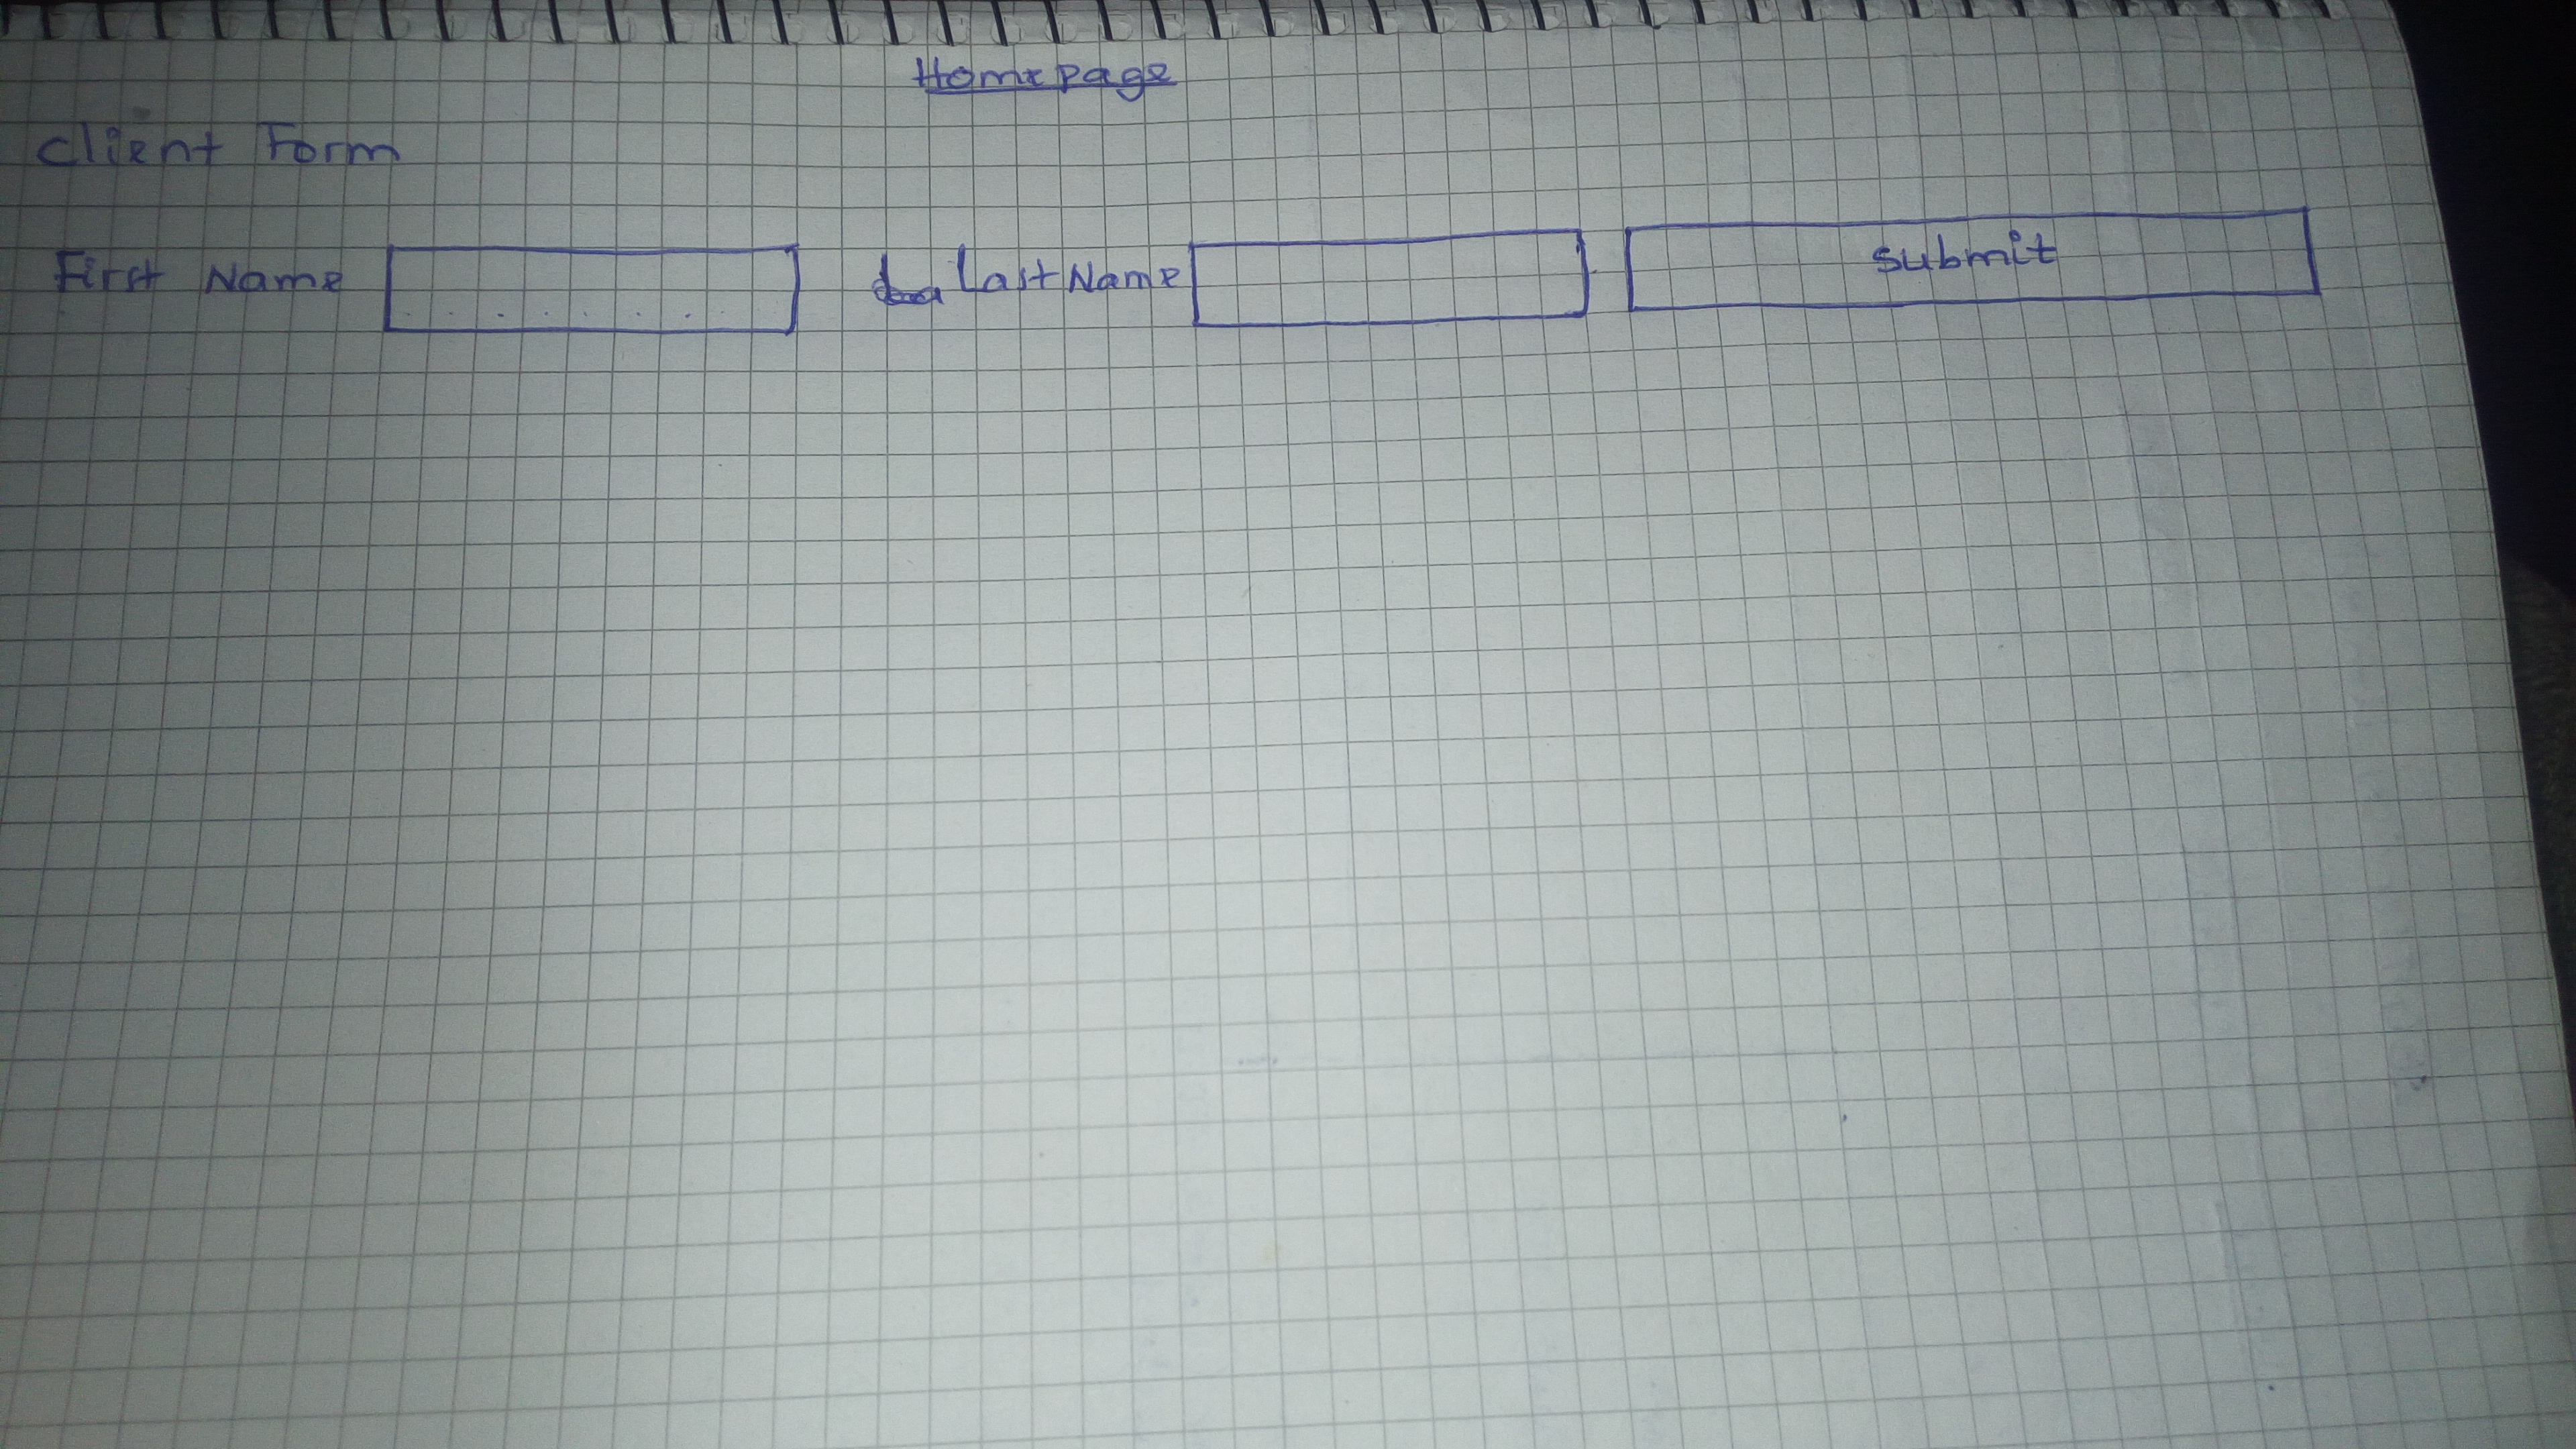 Homepage
Client Form
First Name Last Name submit